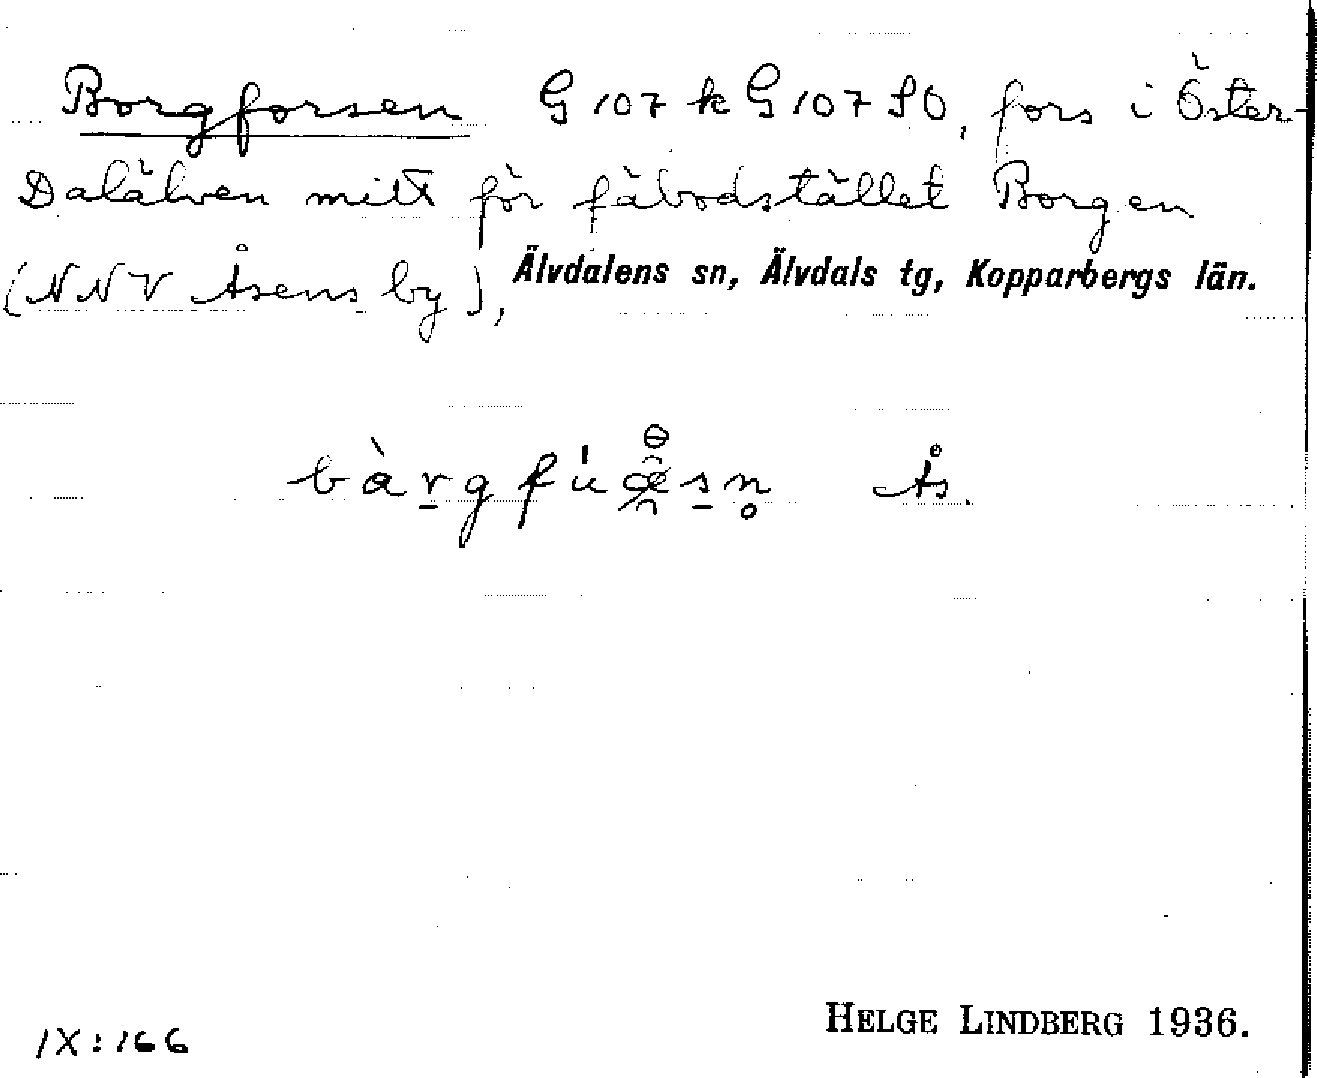 Borgforsen G 107 k G 107 SO, fors i Öster-
Dalälven mitt för fäbodstället Borgen
(NNV Åsens by), Älvdalens sn, Älvdals tg, Kopparbergs län.
Ås.
HELGE LINDBERG 1936.
IX:166